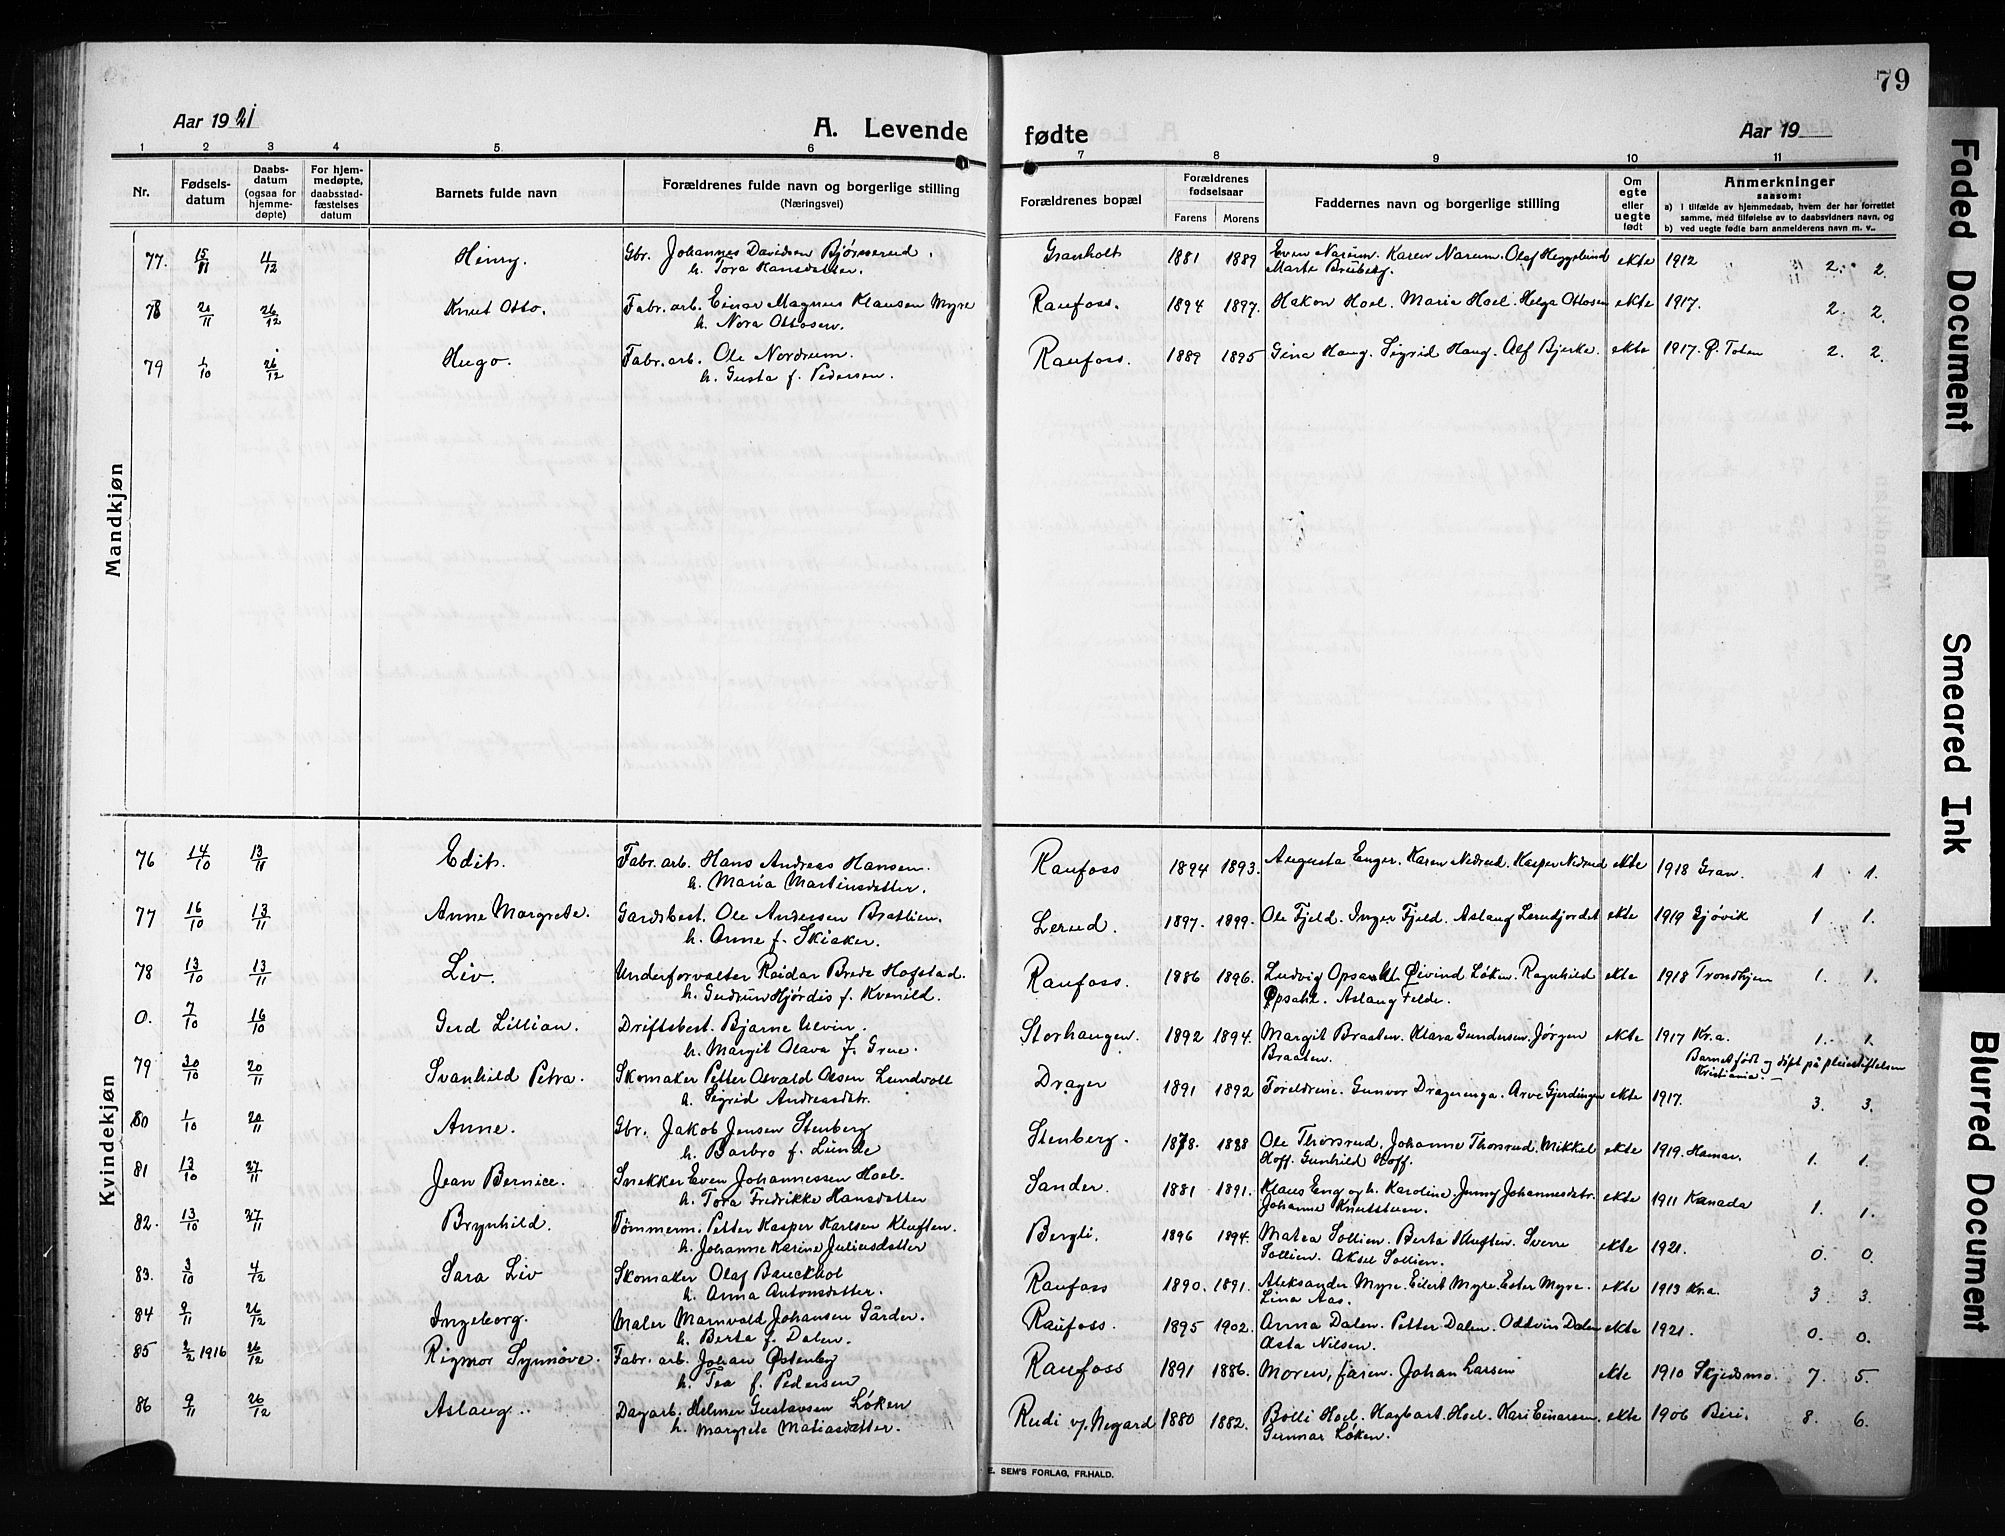 79
Aar 1921
A. Levende
fødte
Aar 19
1 2 3 4 5 6 7 8 9 10 11
Nr.
Fødsels-
datum
Daabs-
datum
(ogsaa for
hjemme-
døpte)
For hjem-
medøpte,
daabsstad-
fæstelses
datum
Barnets fulde navn
Forældrenes fulde navn og borgerlige stilling
(Næringsvei)
Forældrenes bopæl
Forældrenes
fødselsaar
Farens Morens
Faddernes navn og borgerlige stilling
Om
egte
eller
uegte
født
Anmerkninger
saasom:
a) I tilfælde av hjemmedaab, hvem der har forrettet
samme, med tilføielse av to daabsvidners navn, og
b) ved uegte fødte barn anmelderens navn m. v..
Mandkjøn
77. 15/11 11/12 Henry. Gbr. Johannes Davidsen Bjørnerud. Granholt 1881 1889 Even Narum. Karen Narum. Olaf Heggelund ekte 1912 2. 2.
h. Tora Hansdatter. Marte Breiberg.
78 20/11 26/12 Knut Otto. Fabr. arb. Einar Magnus Klausen Myre Raufoss. 1894 1897. Hakon Hoel. Maria Hoel. Helga Ottosen ekte 1917. 2. 2.
h. Nora Ottosen.
79 1/10 26/12 Hugo. Fabr. arb. Ole Nordrum. Raufoss. 1889 1895 Gina Haug. Sigrid Haug. Alf Bjerke. ekte 1917. Ø. Toten 2. 2.
h. Gusta f. Pedersen.
Kvindekjøn
76 14/10 13/11 Edit. Fabr. arb. Hans Andreas Hansen. Raufoss 1894 1893. Augusta Enger. Karen Nedrud. Kasper Nedrud ekte 1918 Gran. 1 1.
h. Maria Martinsdatter.
77 16/10 13/11 Anne Margrete. Gardsbest. Ole Andersen Bratlien. Lerud. 1897. 1899. Ole Fjeld. Inger Fjeld. Aslaug Lerudjordet ekte 1919 Gjøvik 1. 1.
h. Anne f. Skiaker.
78 13/10 13/11 Liv. Underforvalter Reidar Brede Hofstad. Raufoss. 1886 1896. Ludvig Opsahl. Øivind Løken. Ragnhild ekte 1918 Trondhjem 1. 1.
h. Gudrun Hjørdis f. Kvenild. Opsahl. Aslaug Felde.
0. 7/10 16/10 Gerd Lillian. Driftsbest. Bjarne Ulvin. Storhaugen. 1892 1894. Margit Braaten. Klara Gundersen. Jørgen ekte 1917 Kr.a. 1. 1.
h. Margit Olava f. Grue. Braaten. Barnet født og døpt på pleiestiftelsen
Kristiania.
79 30/10 20/11 Svanhild Petra. Skomaker Petter Osvald Olsen Lundvoll Drager 1891 1892 Foreldrene. Gunvor Dragerenga. Arve Gjerdingen ekte 1917. 3. 3.
h. Sigrid Andreasdtr.
80 1/10 20/11 Anne. Gbr. Jakob Jensen Stenberg Stenberg. 1878. 1888 Ole Thorsrud, Johanne Thorsrud. Mikkel ekte 1919. Hamar. 1. 1.
h. Barbro f. Lunde Hoff. Gunhild Hoff.
81 13/10 27/11 Jean Bernice. Snekker Even Johannessen Hoel. Sander. 1881 1891. Klaus Eng og h. Karoline. Jenny Johannesdtr. ekte 1911 Kanada 1. 1.
h. Tora Fredrikke Hansdatter Johanne Knutstuen.
82. 13/10 27/11 Brynhild. Tømmerm. Petter Kasper Karlsen Kluften. Bergli. 1896 1894. Matea Sollien. Berta Kluften. Sverre ekte 1921. 0. 0.
h. Johanne Karine Juliusdatter Sollien. Aksel Sollien.
83. 3/10 4/12 Sara Liv Skomaker Olaf Bauckhol Raufoss 1890. 1891. Aleksander Myre. Eilert Myre. Ester Myre. ekte 1913 Kr.a. 3. 3.
h. Anna Antonsdatter. Lina Aas.
84 9/11 26/12 Ingeborg. Maler Marnvald Johansen Gårder. Raufoss. 1895 1902. Anna Dalen. Petter Dalen. Oddvin Dalen ekte 1921. 0. 0.
h. Berta f. Dalen. Asta Nilsen.
85 2/2 1916 26/12 Rigmor Synnøve. Fabr. arb. Johan Østenby Raufoss 1891 1886. Moren, faren. Johan Larsen ekte 1910 Skjedsmo. 7. 5.
h. Tea f. Pedersen
86 9/11 26/12 Aslaug. Dagarb. Helmer Gustavsen Løken Rudi v/ Negard 1880 1882. Bolli Hoel. Hagbart Hoel. Kari Einarsen. ekte 1906 Biri. 8. 6.
h. Margrete Matiasdatter. Gunnar Løken.
E. SEM'S FORLAG, FR.HALD.
Faded Document
Smeared Ink
Blurred Document